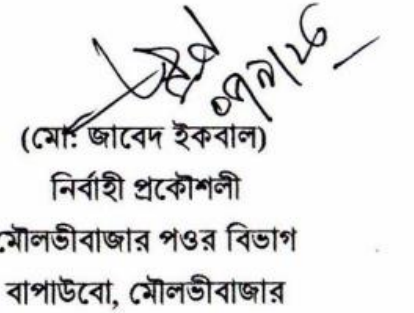 (মো: জাবেদ ইকবাল)
নির্বাহী প্রকৌশলী
মৌলভীবাজার পওর বিভাগ
বাপাউবো, মৌলভীবাজার